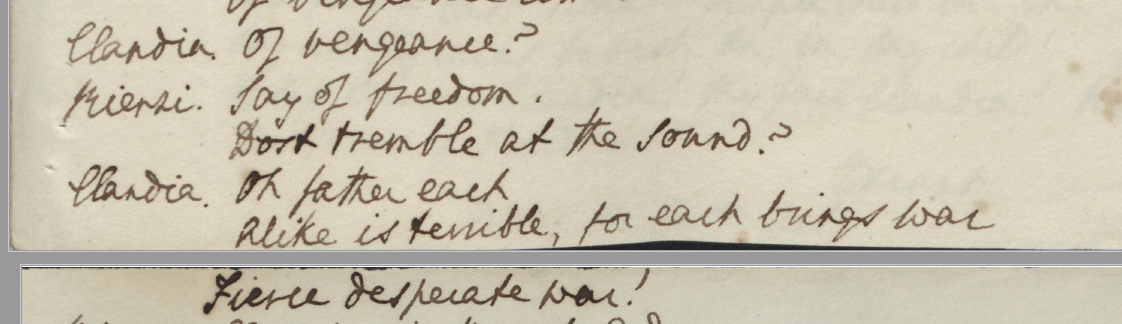 of vengeance
Claudia. Of vengeance?
Rienzi. Say of freedom.
Dost tremble at the sound?
Claudia. Oh father each
Alike is terrible, for each brings war
Fierce desperate war!